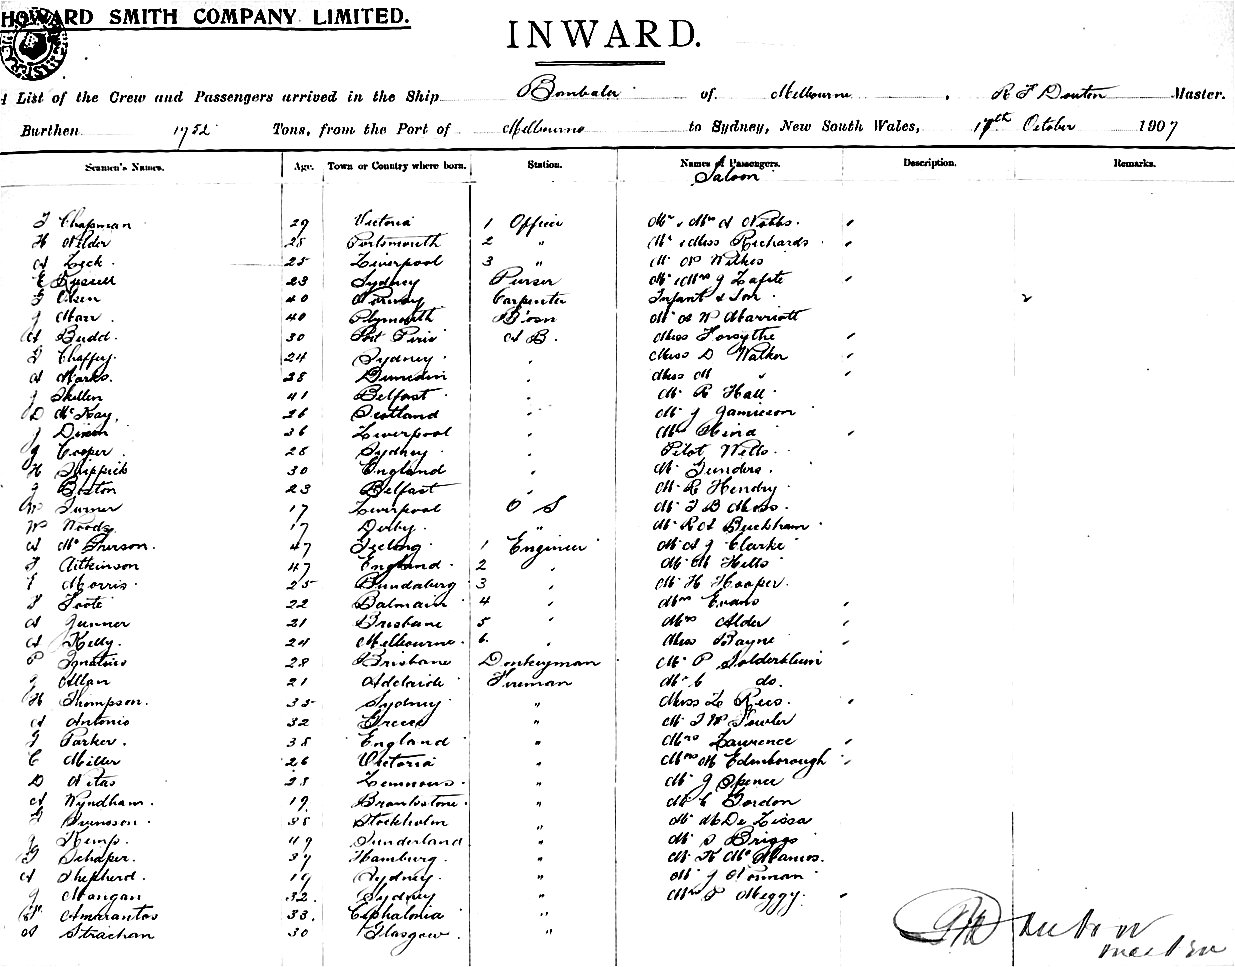 HOWARD SMITH COMPANY LIMITED.
INWARD.
A List of the Crew and Passengers arrived in the Ship Bombala of Melbourne, R F Douton Master.
Burthen Tons, from the Port of Melbourne to Sydney, New South Wales, 17th October 1907
Seamen's Names. Age. Town or Country where born. Station. Names of Passengers. Description. Remarks.
Saloon
F Chapman 29 Victoria 1 Officer Mr & Mrs A Nobbs
H Wilder 28 Portsmouth 2 " Mr & Miss Richards
A Leck 25 Liverpool 3 " M W Wilkes
E Russell 23 Sydney Purser Mr & Mrs J Lafite
F Olsen 40 Norway Carpenter Infant & Son
J Marr 40 Plymouth Bosn Mr A W Marriott
A Budd 30 Port Pirie A B. Miss Forsythe
Chaffey 24 Sydney Miss D Walker
A Marks 28 Dunedin Miss M "
J Skillen 41 Belfast Mr R Hall
D McKay 26 Scotland Mr J Jamieson
J Dixon 36 Liverpool Mrs Hind
J Cooper 28 Sydney Pilot Wells
H 30 England Mr Funders
J Boston 23 Belfast Mr R Hendry
W Turner 17 Liverpool O S Mr F B Moss
W Woods 17 Derby " Mr R A Buckham
A McPherson 47 Geelong 1 Engineer Mr A J Clarke
F Aitkinson 47 England 2 Mr M Hills
E Morris 25 Bundaberg 3 Mr H Hooper
Foote 22 Balmain 4 Mrs Evans
A Gunner 21 Brisbane 5 Mrs Alder
A Kelly 24 Melbourne 6 Miss Bayne
P Ignatius 28 Brisbane Donkeyman Mr P Solderblum
J Allan 21 Adelaide Fireman Mr C do.
H Thompson 35 Sydney " Miss L Rees
A Antonio 32 Greece " Mr F W Fowler
J Parker 38 England " Mrs Lawrence
C Miller 26 Victoria " Mrs M Edinborough
D Vitas 28 Lemnous " Mr J Spence
A Wyndham 19 Brankstone " Mr C Gordon
Svensson 38 Stockholm " Mr M De Lissa
J Kemp 49 Sunderland " Mr S Briggs
Schaper 37 Hamburg " Mr K McManus
A Shepherd 19 Sydney " Mr J Norman
J Mangan 32 Sydney " Mrs P Meggy
Amarantos 33 Cephalonia "
A Strachan 30 Glasgow "
Douton
Master